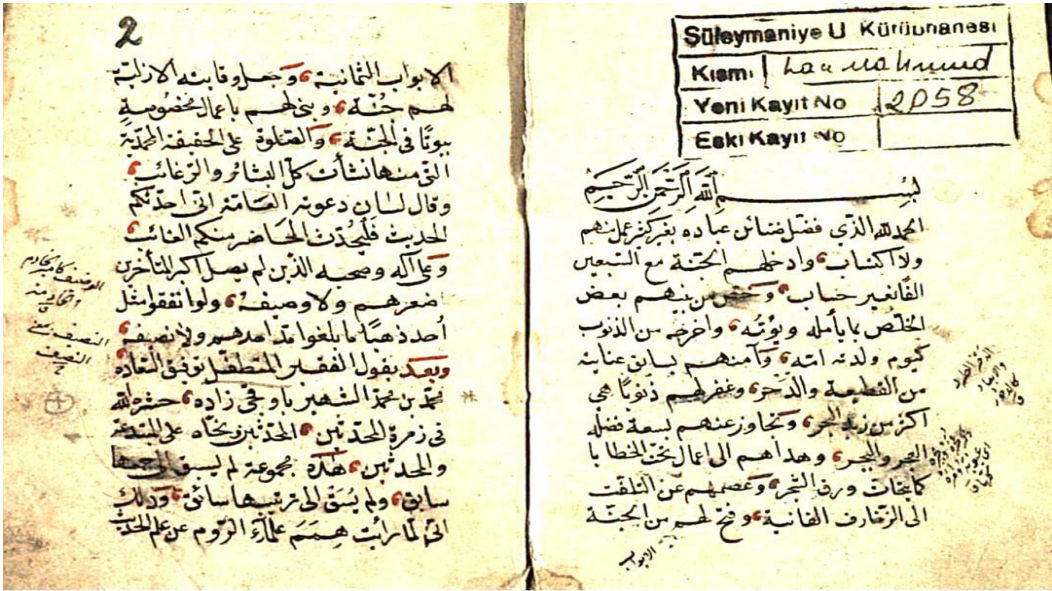 Süleymaniye U Kütüphanesi
Kısmı
Yeni Kayıt No 2058
Eski Kayıt No
بسم الله الرحمن الرحيم
الحمد لله الذي فضل من عباده بغير كثير عمل منهم
ولا اكتساب وادخلهم الجنة مع السبعين
الفا بغير حساب وخص من بينهم بعض
الخلص بما يأمله ويؤتيه واخرجه من الذنوب
كيوم ولدته امه وآمنهم عنايته
من القطيعة والدحر وغفر لهم ذنوبا هي
اكثر من زبد البحر وتجاوز عنهم لسعة فضله
العجر والبجر وهداهم الى اعمال تحت الخطايا
ورق الشجر وعصمهم عن التلفت
الى الزخارف الفانية وفتح لهم من الجنة
الابواب
2
الابواب الثمانية وجعل وقايته الازلية
لهم جنة وبنى لهم باعمال مخصوصة
بيوتا في الجنة والصلوة على الحقيقة المحمدية
التي منها نشأت كل البشائر والرغائب
وقال لسان دعوته العامة اني احدثكم
الحديث فليحدث الحاضر منكم الغائب
وعلى آله وصحبه الذين لم يصل اكبر المتأخرين
اصغرهم ولا وصيفه ولو انفقوا مثل
احد ذهبا ما بلغوا مد احدهم ولا نصيفه
وبعد يقول الفقير المتطفل توفيق السعاده
محمد بن محمد الشهير باوقجي زاده حشره الله
في زمرة المحدثين
هذه مجموعة لم يسبق الى جمعها
سابق ولم يسق الى ترتيبها سائق وذلك
اني لما رأيت همم علماء الروم عن علم الحديث